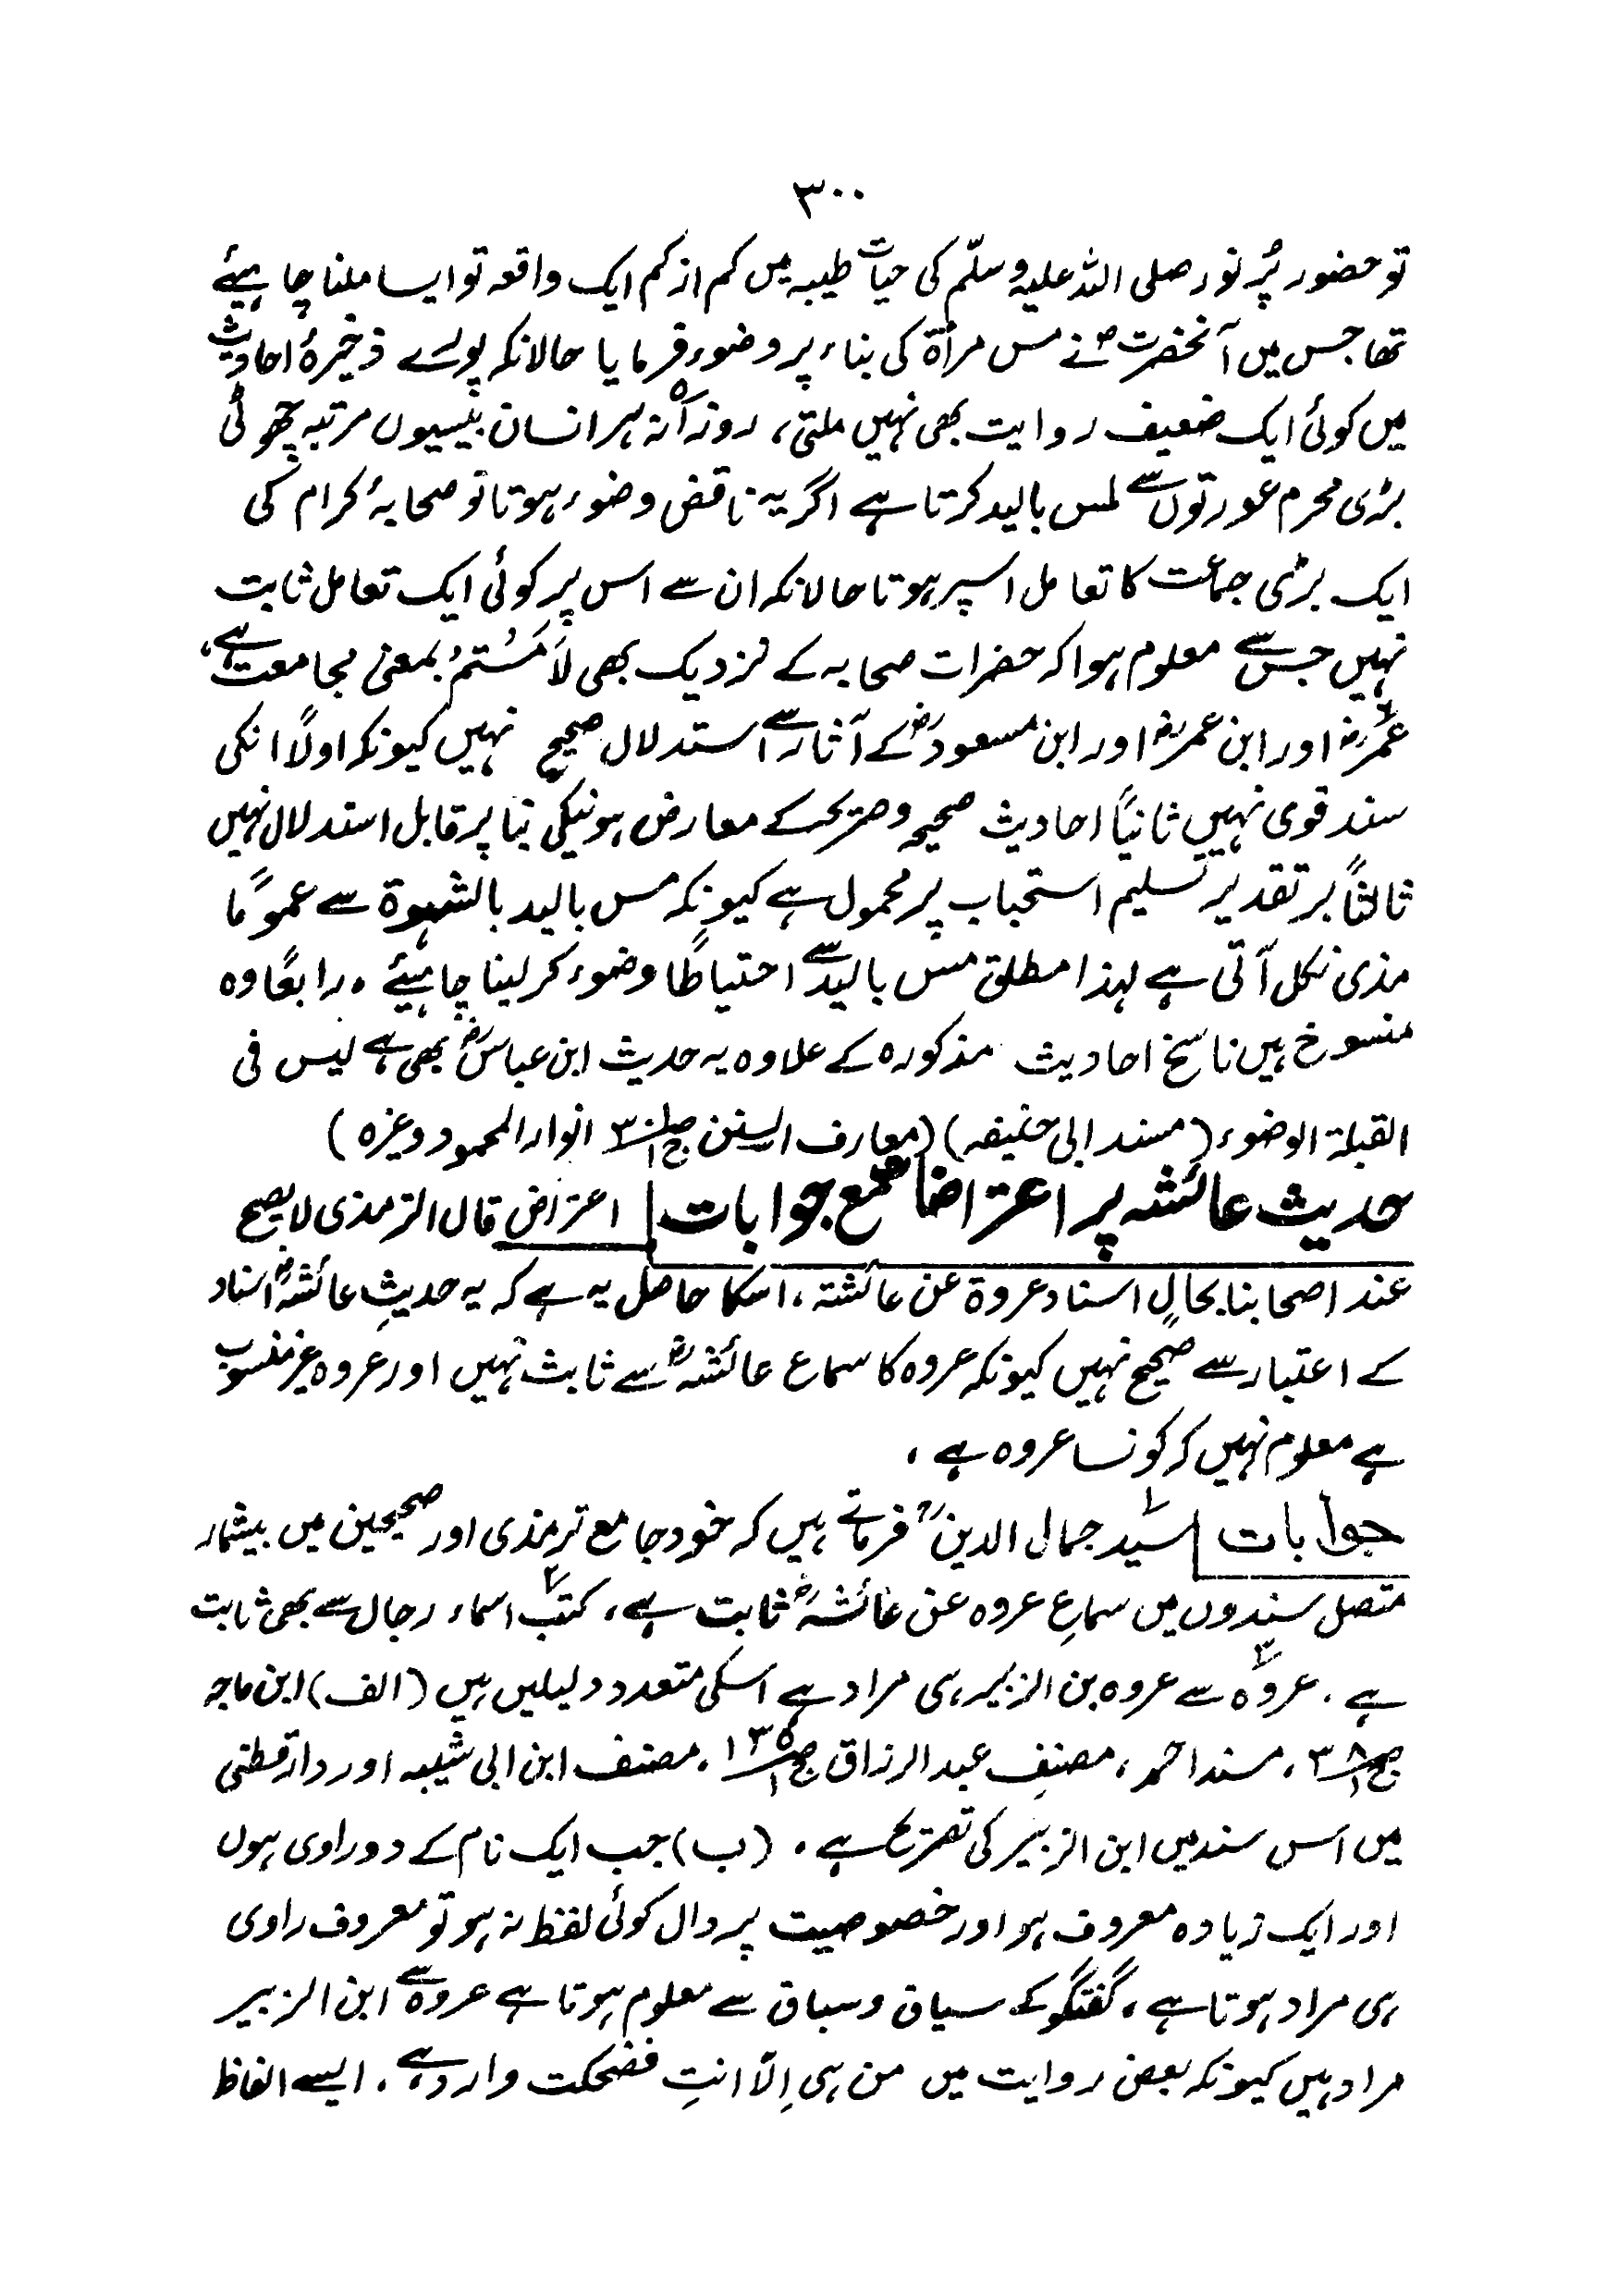 ۳۰۰
تو حضور پُر نور صلی اللہ علیہ وسلّم کی حیات طیبہ میں کم از کم ایک واقعہ تو ایسا ملنا چاہیئے
تھا جس میں آنحضرت ؐ نے مس مرأۃ کی بناء پر وضوء فرمایا حالانکہ پورے ذخیرۂ احادیث
میں کوئی ایک ضعیف روایت بھی نہیں ملتی، روزآنہ ہر انسان بیسیوں مرتبہ چھوٹی
بڑی محرم عورتوں سے لمس بالید کرتا ہے اگر یہ ناقض وضوء ہوتا تو صحابۂ کرام کی
ایک بڑی جماعت کا تعامل اسپر ہوتا حالانکہ ان سے اس پر کوئی ایک تعامل ثابت
نہیں جس سے معلوم ہوا کہ حضرات صحابہ کے نزدیک بھی لَامَسْتُمْ بمعنی مجامعت ہے،
عمرؓ اور ابن عمرؓ اور ابن مسعودؓ کے آثار سے استدلال صحیح نہیں کیونکہ اولاً انکی
سند قوی نہیں ثانیاً احادیث صحیحہ وصریحہ کے معارض ہونیکی بنا پر قابل استدلال نہیں
ثالثاً برتقدیر تسلیم استحباب پر محمول ہے کیونکہ مس بالید بالشہوۃ سے عموماً
مذی نکل آتی ہے لہذا مطلق مس بالید سے احتیاطاً وضوء کر لینا چاہیئے ۔ رابعًا وہ
منسوخ ہیں ناسخ احادیث مذکورہ کے علاوہ یہ حدیث ابن عباسؓ بھی ہے لیس فی
القبلۃ الوضوء (مسند ابی حنیفہ) (معارف السنن ج۱ ص۳۰۱ انوار المحمود وغیرہ)
حدیث عائشہ پر اعتراضات مع جوابات | اعتراض قال الترمذی لا یصح
عند اصحابنا بحالٍ اسناد عروۃ عن عائشۃ، اسکا حاصل یہ ہے کہ یہ حدیثِ عائشہؓ اسناد
کے اعتبار سے صحیح نہیں کیونکہ عروہ کا سماع عائشہؓ سے ثابت نہیں اور عروہ غیر منسوب
ہے معلوم نہیں کہ کونسا عروہ ہے ،
جوابات | ۱ سیّد جمال الدینؒ فرماتے ہیں کہ خود جامع ترمذی اور صحیحین میں بیشمار
متصل سندوں میں سماعِ عروہ عن عائشہؓ ثابت ہے، ۲ کتب اسماء رجال سے بھی ثابت
ہے ۔ ۳ عروہ سے عروہ بن الزبیر ہی مراد ہے اسکی متعدد دلیلیں ہیں (الف) ابن ماجہ
ج۱ ص۳۸، مسند احمد، مصنفِ عبد الرزاق ج۱ ص۱۳۵، مصنف ابن ابی شیبہ اور دارقطنی
میں اس سند میں ابن الزبیر کی تصریح ہے ۔ (ب) جب ایک نام کے دو راوی ہوں
اور ایک زیادہ معروف ہو اور خصوصیت پر دال کوئی لفظ نہ ہو تو معروف راوی
ہی مراد ہوتا ہے، گفتگو کے سیاق وسباق سے معلوم ہوتا ہے عروہ سے ابن الزبیر
مراد ہیں کیونکہ بعض روایت میں من ہی اِلّا انتِ فضحکت وارد ہے ۔ ایسے الفاظ